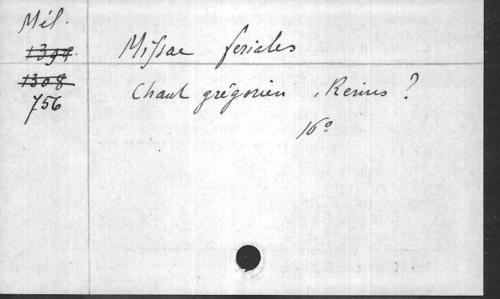 Mél.
1394.
1308
756
Missae feriales
Chant grégorien, Reims ?
16º